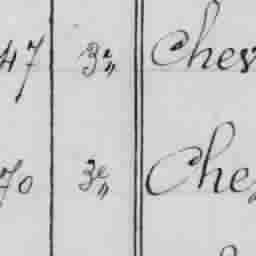 47 3e„ Chev
70 3e„ Che